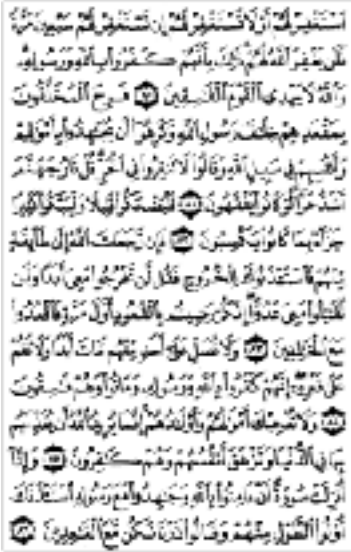 ٱسْتَغْفِرْ لَهُمْ أَوْ لَا تَسْتَغْفِرْ لَهُمْ إِن تَسْتَغْفِرْ لَهُمْ سَبْعِينَ مَرَّةً
فَلَن يَغْفِرَ ٱللَّهُ لَهُمْ ذَٰلِكَ بِأَنَّهُمْ كَفَرُوا۟ بِٱللَّهِ وَرَسُولِهِۦ
وَٱللَّهُ لَا يَهْدِى ٱلْقَوْمَ ٱلْفَٰسِقِينَ ٨٠ فَرِحَ ٱلْمُخَلَّفُونَ
بِمَقْعَدِهِمْ خِلَٰفَ رَسُولِ ٱللَّهِ وَكَرِهُوٓا۟ أَن يُجَٰهِدُوا۟ بِأَمْوَٰلِهِمْ
وَأَنفُسِهِمْ فِى سَبِيلِ ٱللَّهِ وَقَالُوا۟ لَا تَنفِرُوا۟ فِى ٱلْحَرِّ قُلْ نَارُ جَهَنَّمَ
أَشَدُّ حَرًّا لَّوْ كَانُوا۟ يَفْقَهُونَ ٨١ فَلْيَضْحَكُوا۟ قَلِيلًا وَلْيَبْكُوا۟ كَثِيرًا
جَزَآءًۢ بِمَا كَانُوا۟ يَكْسِبُونَ ٨٢ فَإِن رَّجَعَكَ ٱللَّهُ إِلَىٰ طَآئِفَةٍ
مِّنْهُمْ فَٱسْتَـْٔذَنُوكَ لِلْخُرُوجِ فَقُل لَّن تَخْرُجُوا۟ مَعِىَ أَبَدًا وَلَن
تُقَٰتِلُوا۟ مَعِىَ عَدُوًّا إِنَّكُمْ رَضِيتُم بِٱلْقُعُودِ أَوَّلَ مَرَّةٍ فَٱقْعُدُوا۟
مَعَ ٱلْخَٰلِفِينَ ٨٣ وَلَا تُصَلِّ عَلَىٰٓ أَحَدٍ مِّنْهُم مَّاتَ أَبَدًا وَلَا تَقُمْ
عَلَىٰ قَبْرِهِۦٓ إِنَّهُمْ كَفَرُوا۟ بِٱللَّهِ وَرَسُولِهِۦ وَمَاتُوا۟ وَهُمْ فَٰسِقُونَ
٨٤ وَلَا تُعْجِبْكَ أَمْوَٰلُهُمْ وَأَوْلَٰدُهُمْ إِنَّمَا يُرِيدُ ٱللَّهُ أَن يُعَذِّبَهُم
بِهَا فِى ٱلدُّنْيَا وَتَزْهَقَ أَنفُسُهُمْ وَهُمْ كَٰفِرُونَ ٨٥ وَإِذَآ
أُنزِلَتْ سُورَةٌ أَنْ ءَامِنُوا۟ بِٱللَّهِ وَجَٰهِدُوا۟ مَعَ رَسُولِهِ ٱسْتَـْٔذَنَكَ
أُو۟لُوا۟ ٱلطَّوْلِ مِنْهُمْ وَقَالُوا۟ ذَرْنَا نَكُن مَّعَ ٱلْقَٰعِدِينَ ٨٦